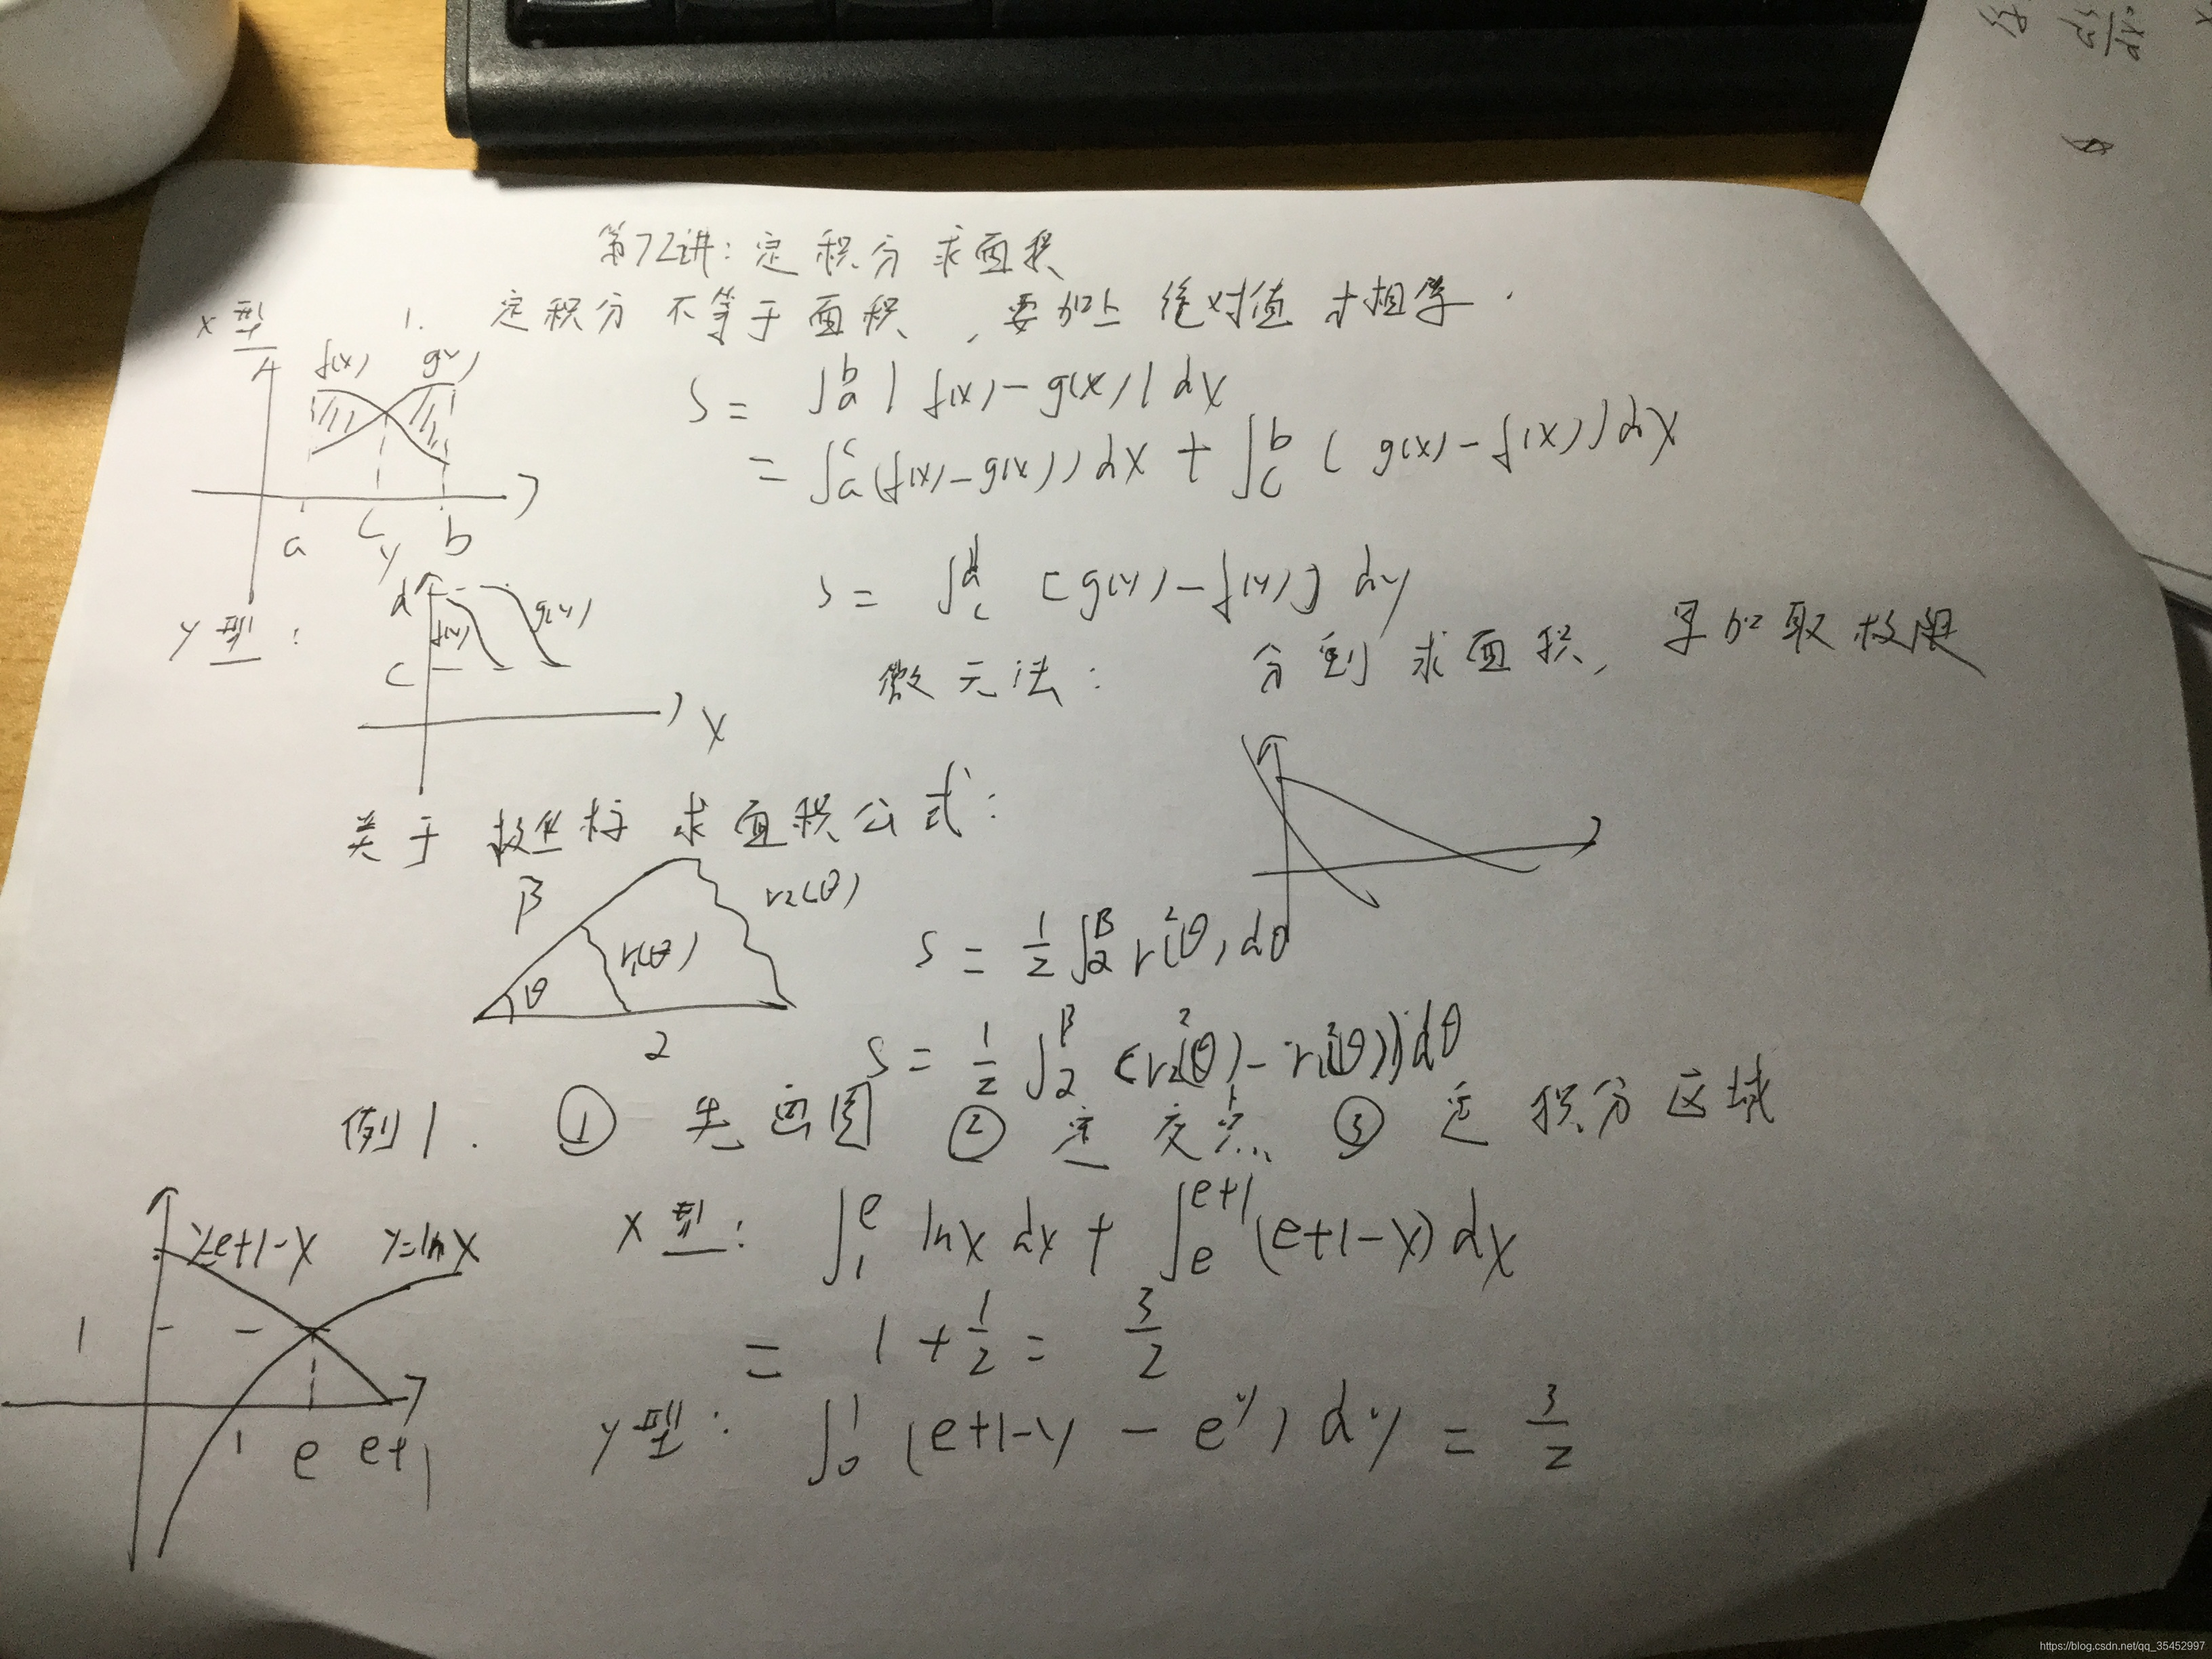 第72讲: 定积分求面积
x型
1. 定积分不等于面积, 要加上绝对值才相等.
f(x) g(x)
S = ∫_a^b |f(x) - g(x)| dx
= ∫_a^c (f(x) - g(x)) dx + ∫_c^b (g(x) - f(x)) dx
a c b
y
d
y型:
f(y) g(y)
c
x
S = ∫_c^d [g(y) - f(y)] dy
微元法: 分割求面积, 累加取极限
关于极坐标求面积公式:
β r₂(θ)
r₁(θ)
θ
2
S = 1/2 ∫_2^β r²(θ) dθ
S = 1/2 ∫_2^β (r₂²(θ) - r₁²(θ)) dθ
例1. ① 先画图 ② 定交点 ③ 定积分区域
y=e+1-x y=lnx
x型: ∫_1^e lnx dx + ∫_e^{e+1} (e+1-x) dx
1
= 1 + 1/2 = 3/2
1 e e+1
y型: ∫_0^1 (e+1-y - e^y) dy = 3/2
https://blog.csdn.net/qq_35452997